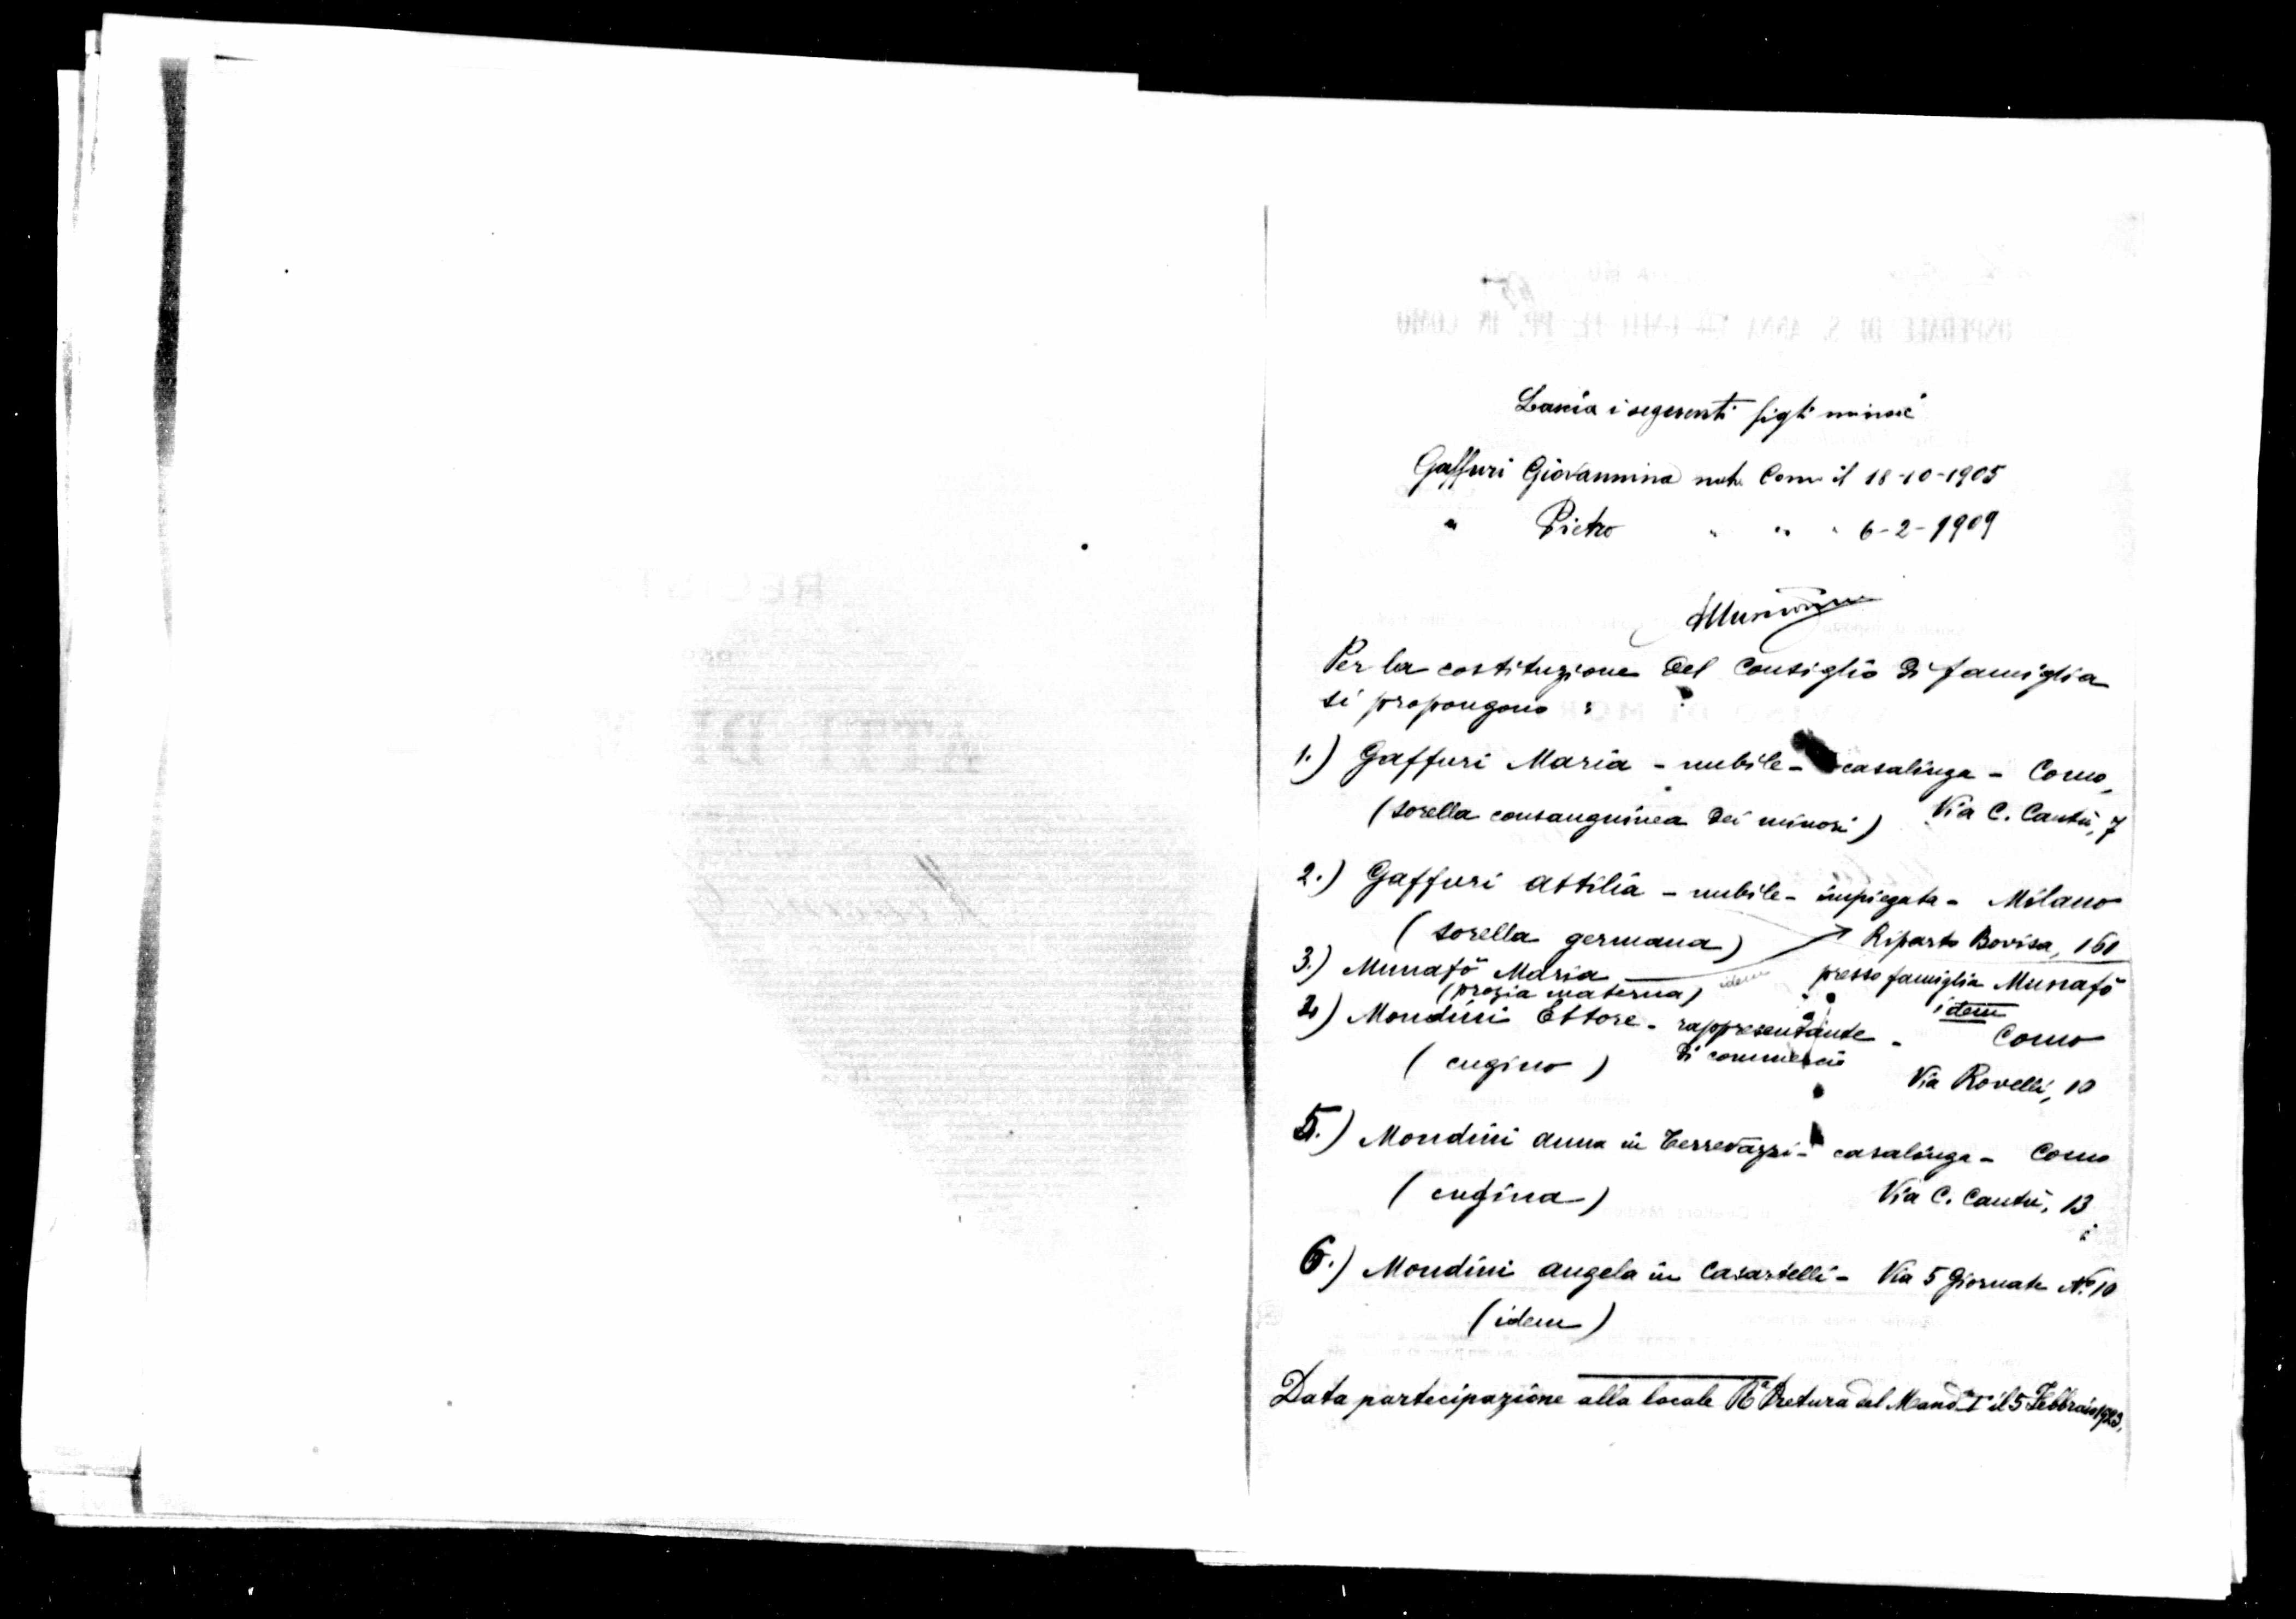 Lascia i seguenti figli minori
Gaffuri Giovannina nata Como il 18-10-1905
" Pietro " " " 6-2-1909
Per la costituzione del Consiglio di famiglia
si propongono :
1.) Gaffuri Maria - nubile - casalinga - Como,
(sorella consanguinea dei minori) Via C. Cantù, 7
2.) Gaffuri Attilia - nubile - impiegata - Milano
(sorella germana) Riparto Bovisa, 161
3.) Munafò Maria idem presso famiglia Munafò
(prozia materna) idem
4) Mondini Ettore - rappresentante - Como
(cugino) di commercio
Via Rovelli, 10
5.) Mondini Anna in Terrevazzi - casalinga - Como
(cugina) Via C. Cantù, 13
6.) Mondini Angela in Casartelli - Via 5 Giornate No. 10
(idem)
Data partecipazione alla locale Ra Pretura del Mando I il 5 Febbraio 1923.
OSPEDALE DI S. ANNA IN COMO
ATTI DI